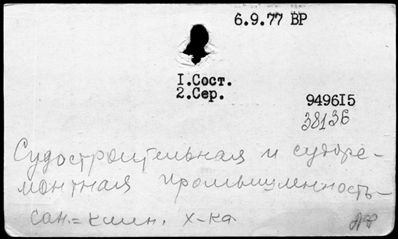 6.9.77 ВР
I.Сост.
2.Сер.
9496I5
38136
Судостроительная и судоре-
монтная промышленность-
сан.=клин. х-ка